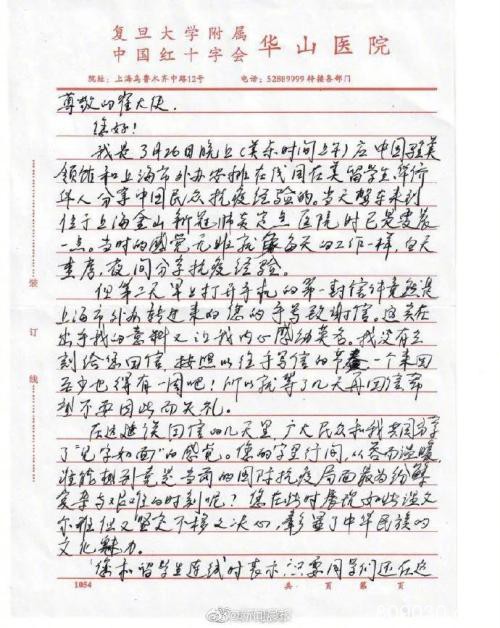 复旦大学附属
中国红十字会 华山医院
院址：上海乌鲁木齐中路12号 电话：52889999转接各部门
尊敬的崔大使，
您好！
我是3月26日晚上(美东时间上午)应中国驻美
领馆和上海市外办安排在民国在美留学生、华侨
华人分享中国民众抗疫经验的。当天驱车来到
位于上海金山新冠肺炎定点医院时已是凌晨
一点。当时的感觉无非和每天的工作一样，白天
查房，夜间分享抗疫经验。
但第二天早上打开手机的第一封信件竟然是
上海市外办转过来的您的手写致谢信。这实在
出乎我的意料又让我内心感动莫名。我没有立
刻给您回信，按照以往手写信的节奏，一个来回
至少也得有一周吧！所以就等了几天再回信希
望不要因此而失礼。
在这迟候回信的几天里，广大民众和我共同享
了“见字如面”的感觉。您的字里行间，从容而温暖，
谁能想到竟是当两的国际抗疫局面最为纷繁
复杂与艰难的时刻呢？您在此时展现如此淡文
尔雅但又坚定不移之决心，彰显了中华民族的
文化魅力。
您和留学生连线时表示只要同学们还在这
装
订
线
1054 共 页 第 页